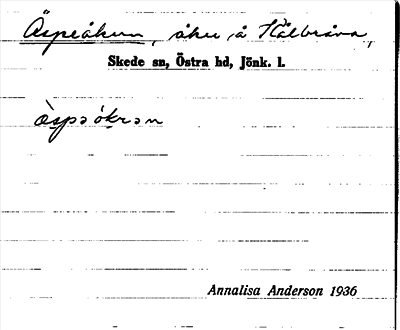 Äspeåkern, åker å Hålbråva,
Skede sn, Östra hd, Jönk. l.
ằspəókrən
Annalisa Anderson 1936